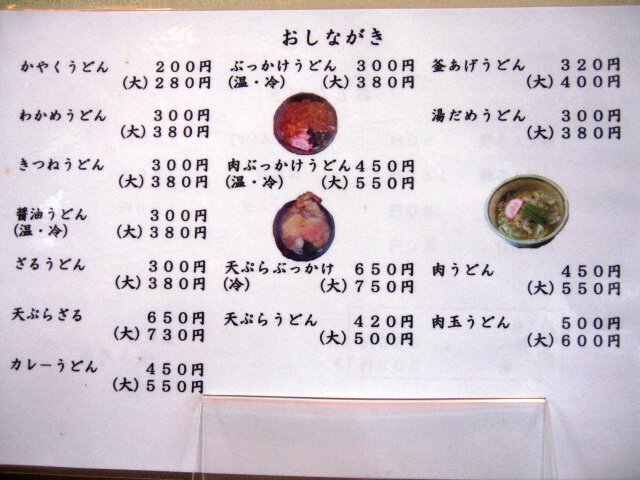 おしながき
かやくうどん 200円
(大)280円
わかめうどん 300円
(大)380円
きつねうどん 300円
(大)380円
醤油うどん 300円
(温・冷) (大)380円
ざるうどん 300円
(大)380円
天ぷらざる 650円
(大)730円
カレーうどん 450円
(大)550円
ぶっかけうどん 300円
(温・冷) (大)380円
肉ぶっかけうどん 450円
(温・冷) (大)550円
天ぷらぶっかけ 650円
(冷) (大)750円
天ぷらうどん 420円
(大)500円
釜あげうどん 320円
(大)400円
湯だめうどん 300円
(大)380円
肉うどん 450円
(大)550円
肉玉うどん 500円
(大)600円